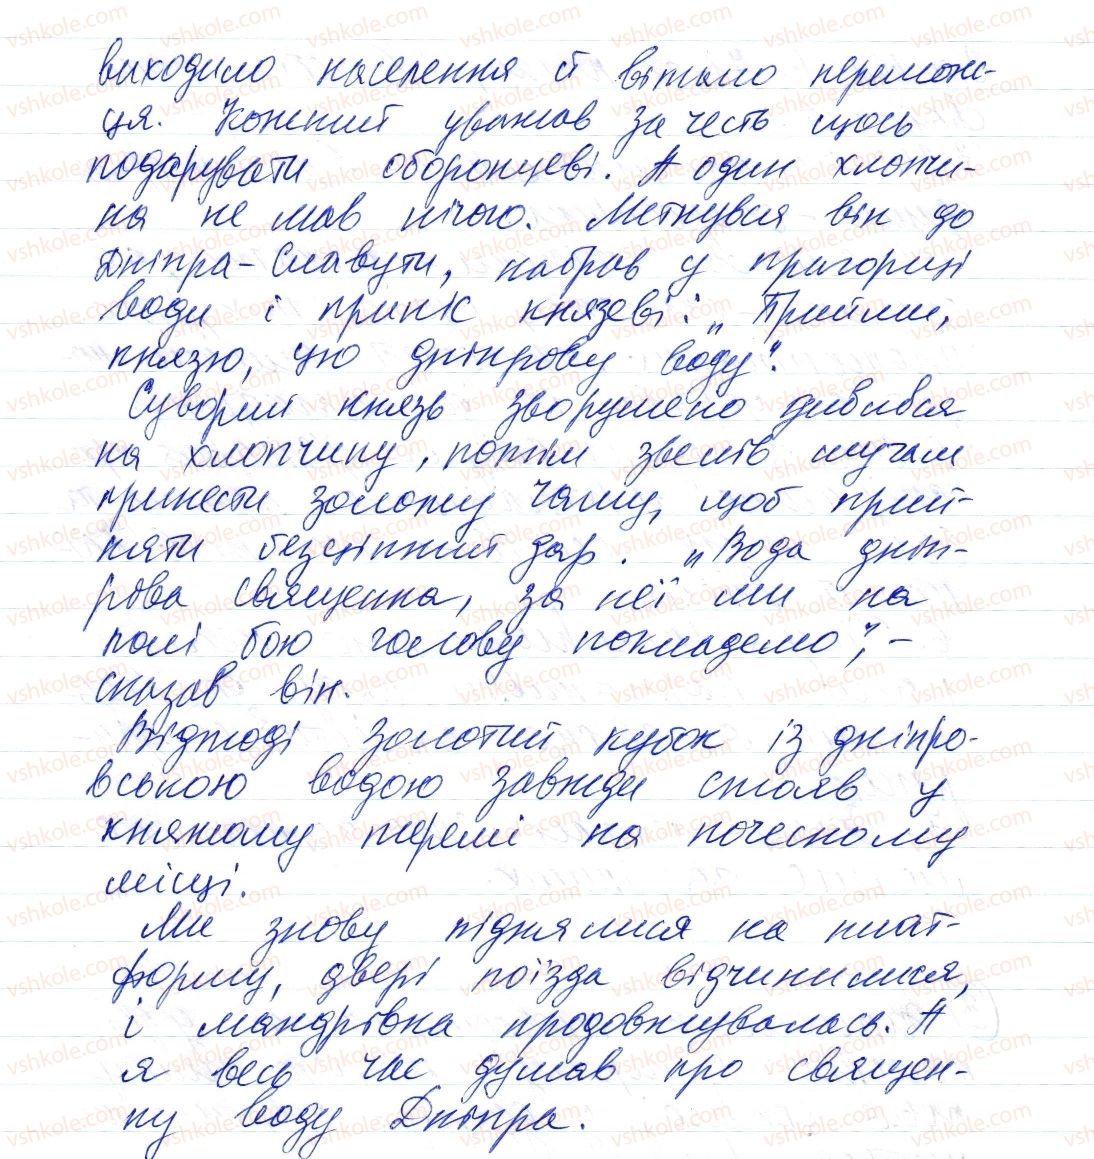 виходило населення й вітало перемож-
ця. Кожний уважав за честь щось
подарувати оборонцеві. А один хлопчи-
на не мав нічого. Метнувся він до
Дніпра-Славути, набрав у пригорщі
води і приніс князеві: „Прийми,
князю, цю дніпрову воду".
Суворий князь зворушено дивився
на хлопчину, потім звелів слугам
принести золоту чашу, щоб прий-
няти безцінний дар. „Вода дніп-
рова священна, за неї ми на
полі бою голову покладемо", –
сказав він.
Відтоді золотий кубок із дніпро-
вською водою завжди стояв у
княжому теремі на почесному
місці.
Ми знову піднялися на плат-
форму, двері поїзда відчинилися,
і мандрівка продовжувалась. А
я весь час думав про священ-
ну воду Дніпра.